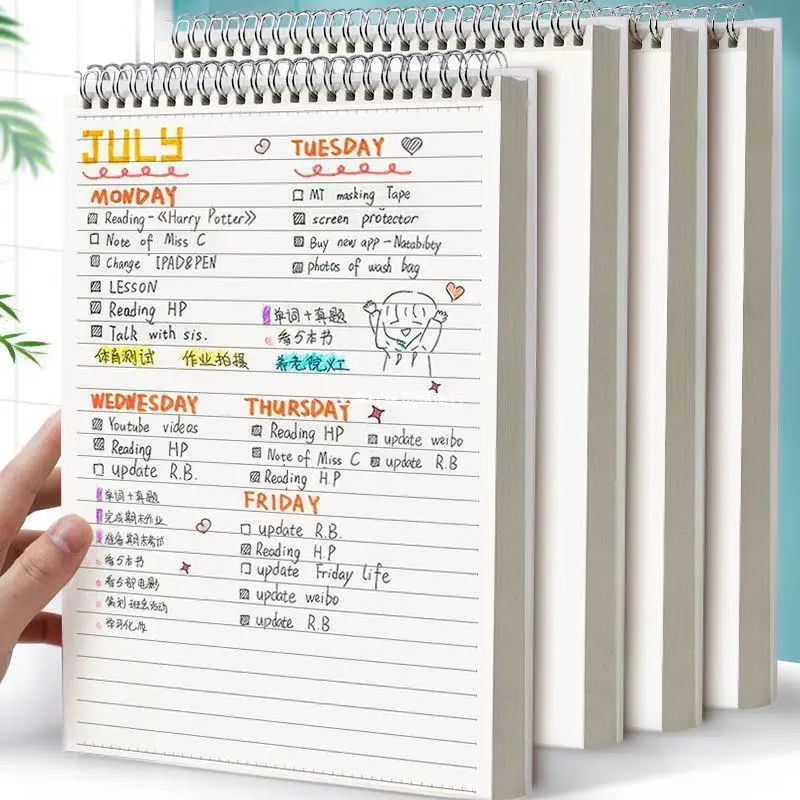 JULY
MONDAY
Reading-《Harry Potter》
Note of Miss C
Change IPAD&PEN
LESSON
Reading HP
Talk with sis.
体育测试 作业拍摄 养老院义工
TUESDAY
MT masking Tape
screen protector
Buy new app-Natabibty
photos of wash bag
单词+真题
看5本书
WEDNESDAY
Youtube videos
Reading HP
update R.B.
单词+真题
完成期末作业
准备期末考试
看5本书
看5部电影
策划班会活动
学习化妆
THURSDAY
Reading HP
Note of Miss C
Reading H.P
update weibo
update R.B
FRIDAY
update R.B.
Reading H.P
update Friday life
update weibo
update R.B